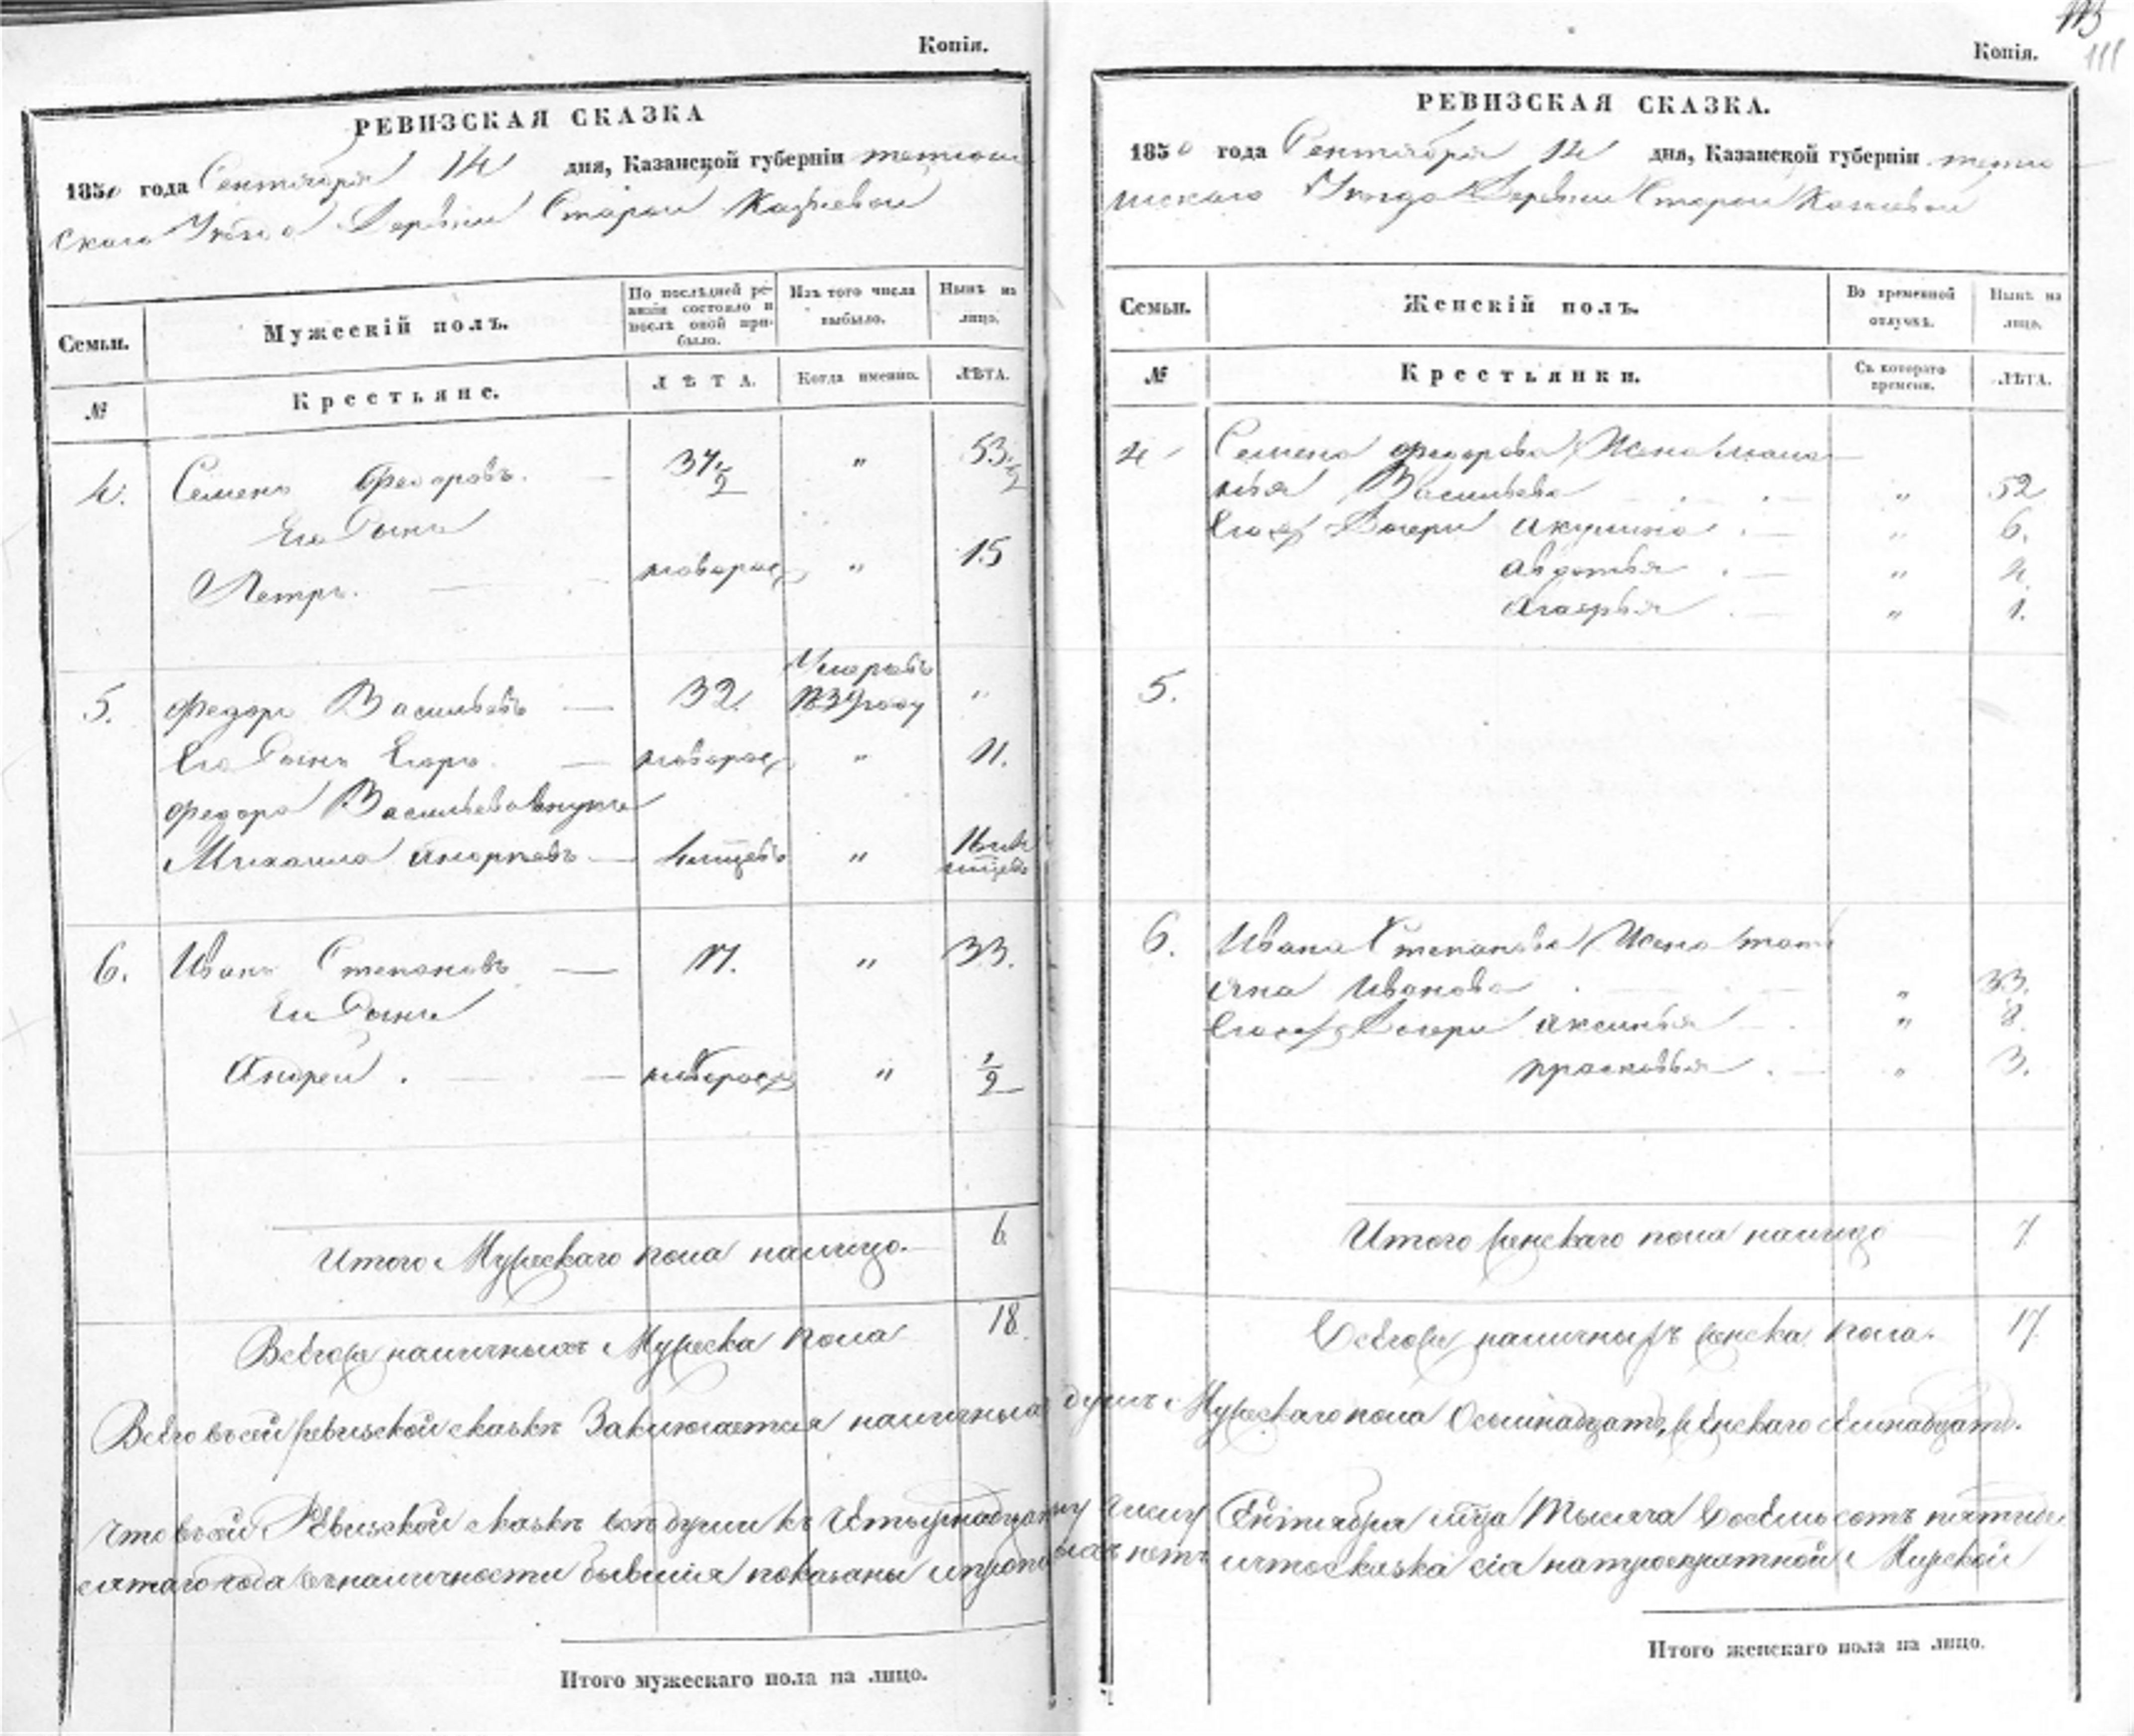 Копія.
РЕВИЗСКАЯ СКАЗКА
1850 года Сентября 14 дня, Казанской губерніи тетюш
скаго Уѣзда Деревни Старой
Семьи.
Мужескій полъ.
По послѣдней ре-
визіи состояло и
послѣ оной при-
было.
Изъ того числа
выбыло.
Нынѣ на
лицо.
№
Крестьяне.
ЛѢТА.
Когда именно.
ЛѢТА.
4. Семенъ Федоровъ. 37½ " 53½
Его Сынъ
Петръ. новорож " 15
5. Федоръ Васильевъ 32. Умеръ въ 1839 году "
Его Сынъ Егоръ новорож " 11.
Федора Васильева внукъ
Михаила Андреевъ "
6. Иванъ Степановъ 17. " 33.
Его Сынъ
Андрей. новорож " ½
Итого Мужескаго пола налицо. 6
Всѣго же наличныхъ Мужеска пола 18
Копія.
111
РЕВИЗСКАЯ СКАЗКА.
1850 года Сентября 14 дня, Казанской губерніи тетю
шскаго Уѣзда Деревни Старой
Семьи.
Женскій полъ.
Во временной
отлучкѣ.
Нынѣ на
лицо.
№
Крестьянки.
Съ котораго
времени.
ЛѢТА.
4 Семена Федорова Жена Мала
нья Васильева " 52
Его же Дочери Акулина " 6.
Авдотья " 4
Агафья " 1.
5.
6. Ивана Степанова Жена тать
яна Иванова " 33.
Его же Дочери Аксинья " 8
прасковья " 3.
Итого женскаго пола налицо 7
Всѣго же наличныхъ женска пола. 17
Всѣго въ сей ревизской сказкѣ Заключается наличныхъ душъ Мужескаго пола Осьмнадцать, женскаго сѣмнадцать.
Что въ сей Ревизской сказкѣ всѣ души къ Четырнадцатому числу Сентября мца Тысяча Восемь сотъ пятиде
сятаго года въ наличности бывшія показаны и прописныхъ нѣтъ и что сказка сія на троекратной Мирской
Итого мужескаго пола на лицо.
Итого женскаго пола на лицо.